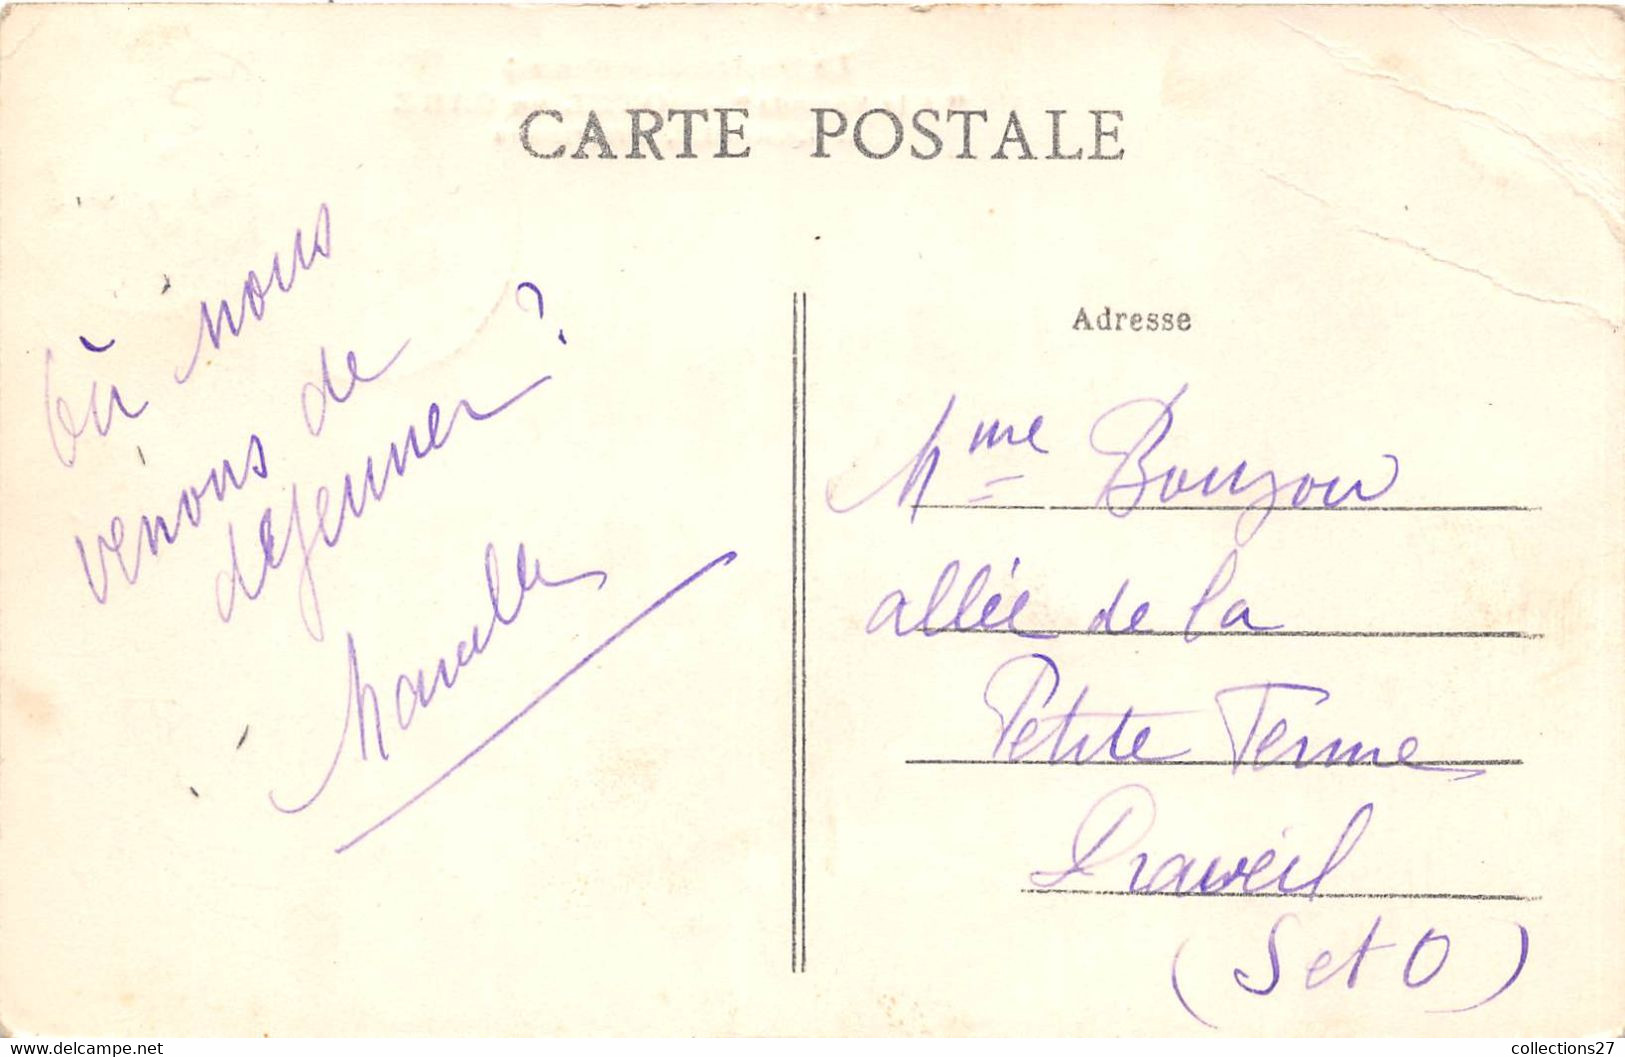 CARTE POSTALE
Où nous
venons de
dejeuner ?
Adresse
Mme Bouzou
allée de la
Petite Ferme
Draveil
(S et O)
collections27